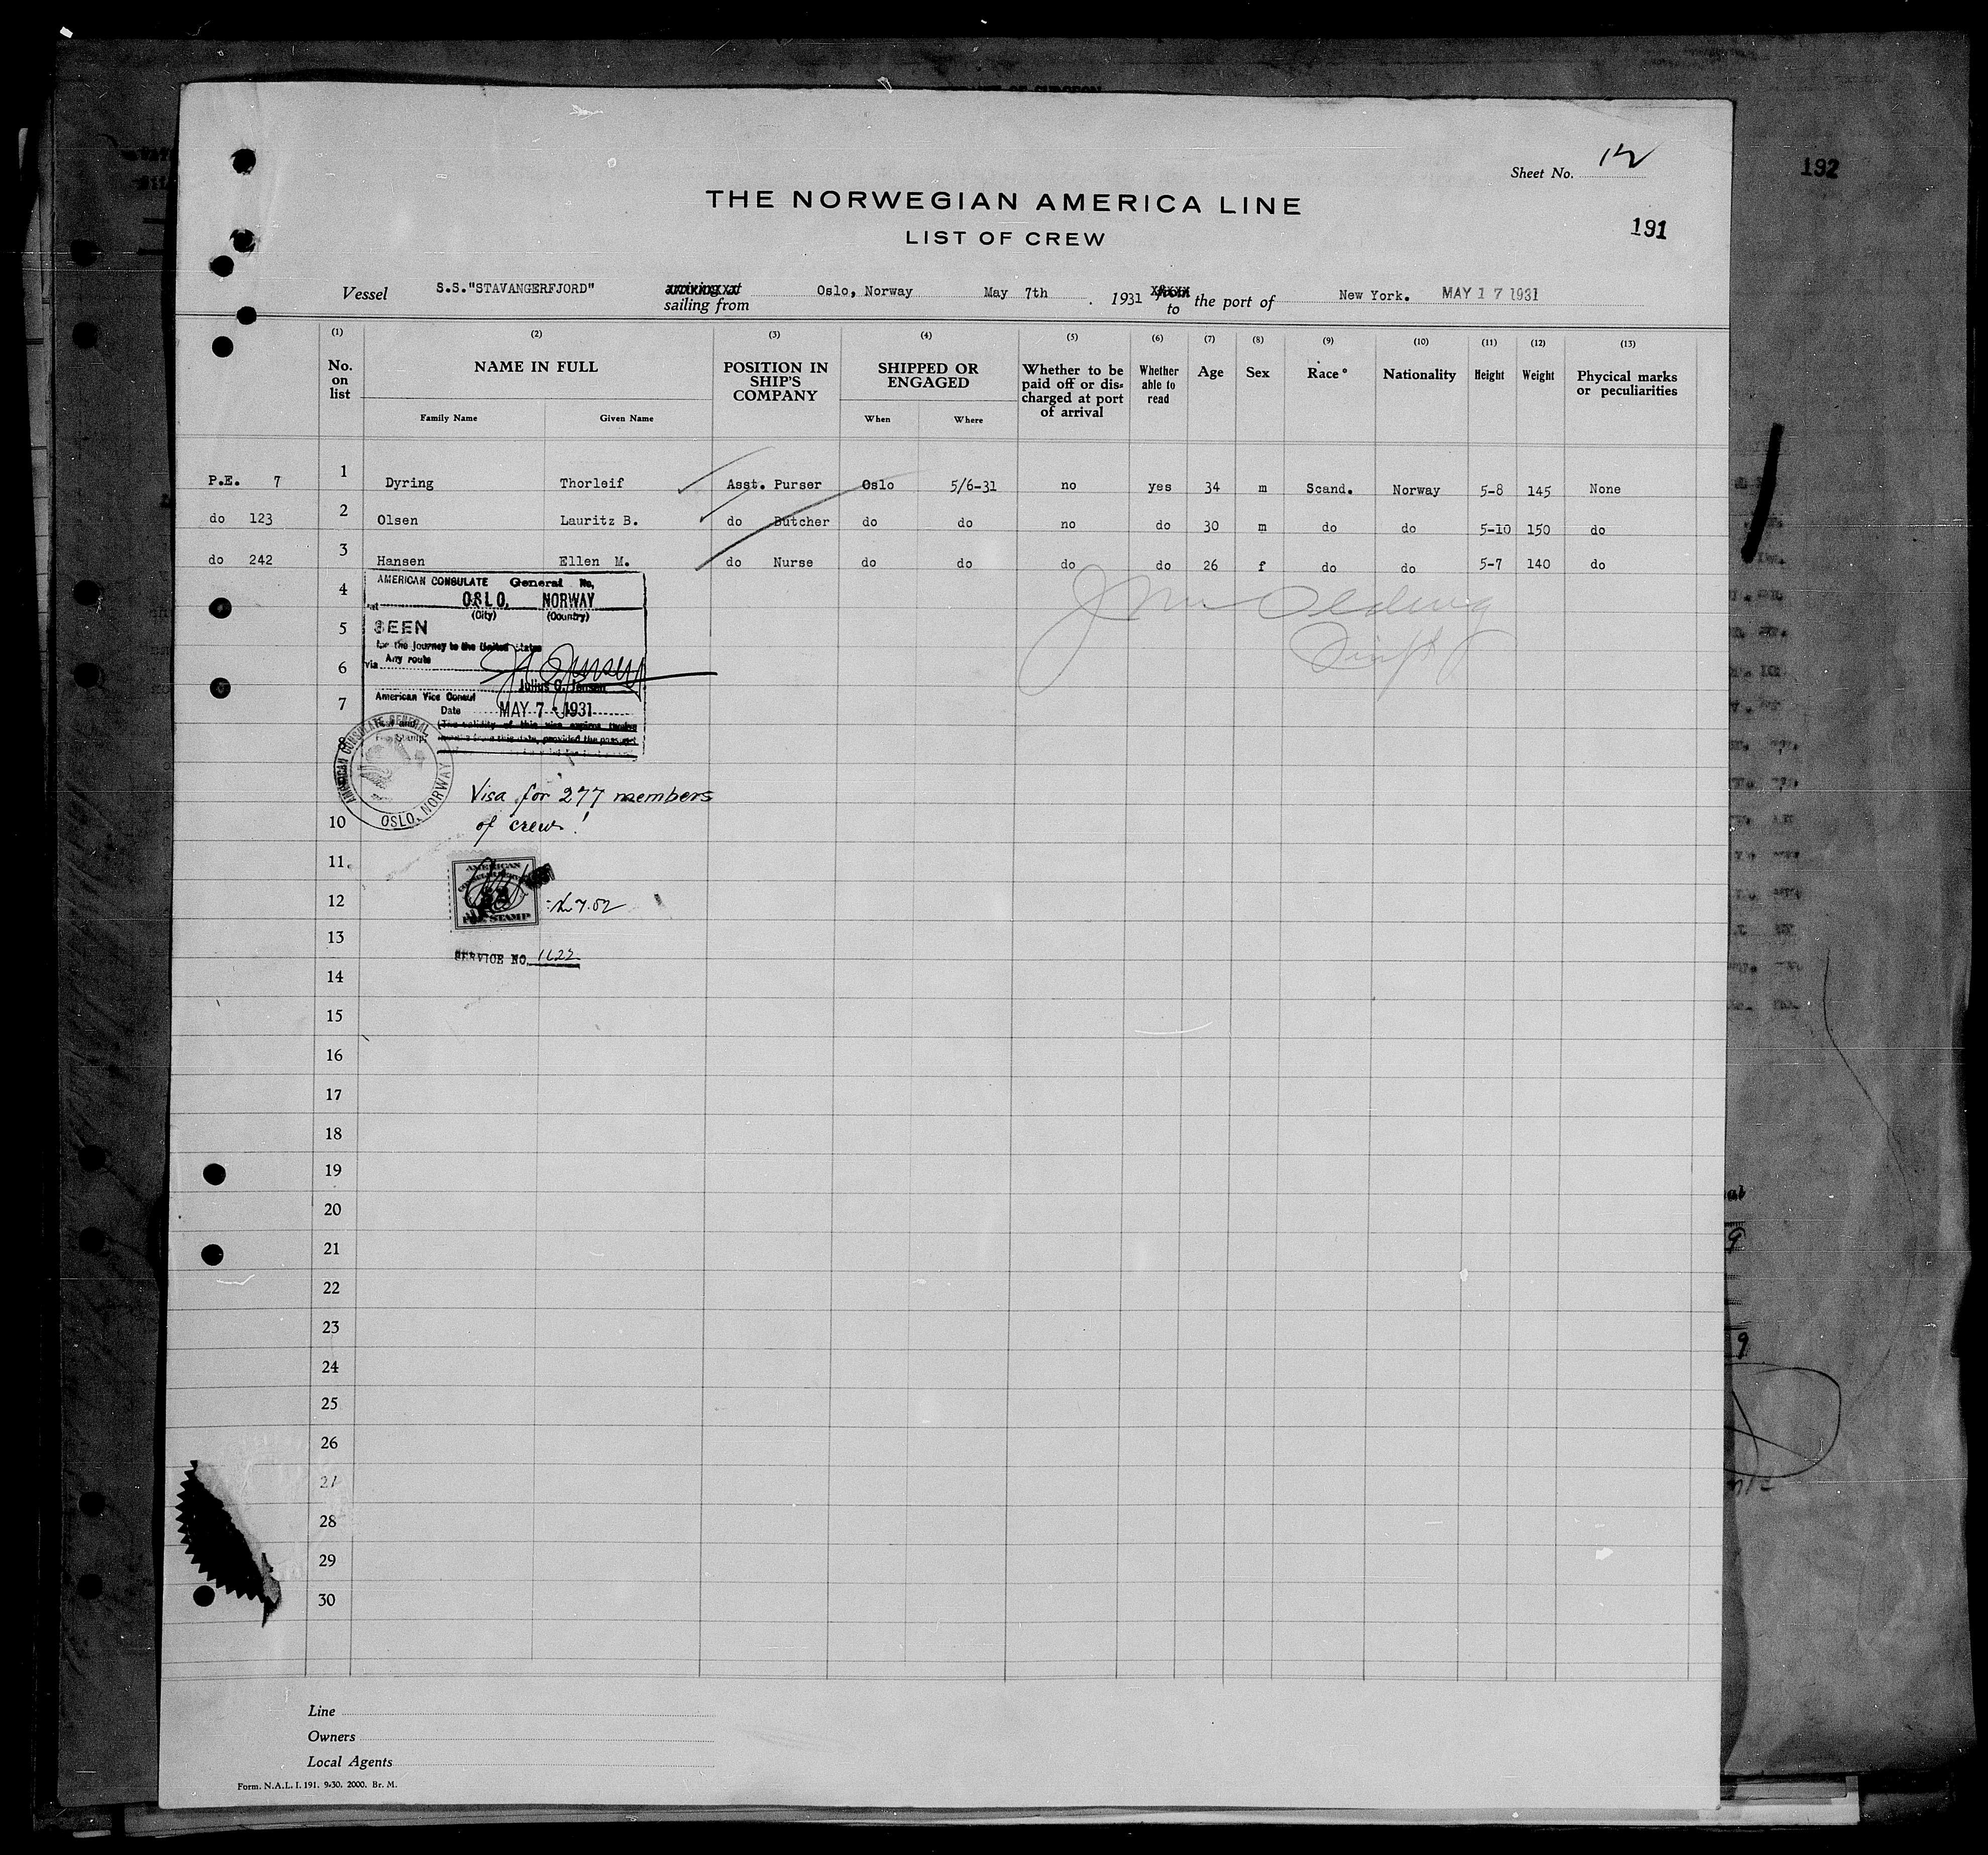 Sheet No. 12
192
THE NORWEGIAN AMERICA LINE
191
LIST OF CREW
Vessel S.S."STAVANGERFJORD" arriving at sailing from Oslo, Norway May 7th . 1931 from to the port of New York. MAY 17 1931
(1) (2) (3) (4) (5) (6) (7) (8) (9) (10) (11) (12) (13)
No. on list NAME IN FULL POSITION IN SHIP'S COMPANY SHIPPED OR ENGAGED Whether to be paid off or dis-charged at port of arrival Whether able to read Age Sex Race* Nationality Height Weight Phycical marks or peculiarities
Family Name Given Name When Where
P.E. 7 1 Dyring Thorleif Asst. Purser Oslo 5/6-31 no yes 34 m Scand. Norway 5-8 145 None
do 123 2 Olsen Lauritz B. do Butcher do do no do 30 m do do 5-10 150 do
do 242 3 Hansen Ellen M. do Nurse do do do do 26 f do do 5-7 140 do
4
AMERICAN CONSULATE General No,
at OSLO, NORWAY
(City) (Country)
5
SEEN
for the journey to the United States
6
via Any route
Julius C. Jensen
7
American Vice Consul
Date MAY 7 - 1931
8
AMERICAN CONSULATE GENERAL
OSLO, NORWAY
Visa for 277 members
10
of crew!
11
AMERICAN
12
FEE STAMP
13
SERVICE NO. 1622
14
15
16
17
18
19
20
21
22
23
24
25
26
27
28
29
30
Line
Owners
Local Agents
Form. N.A.L. I. 191. 9-30. 2000. Br. M.